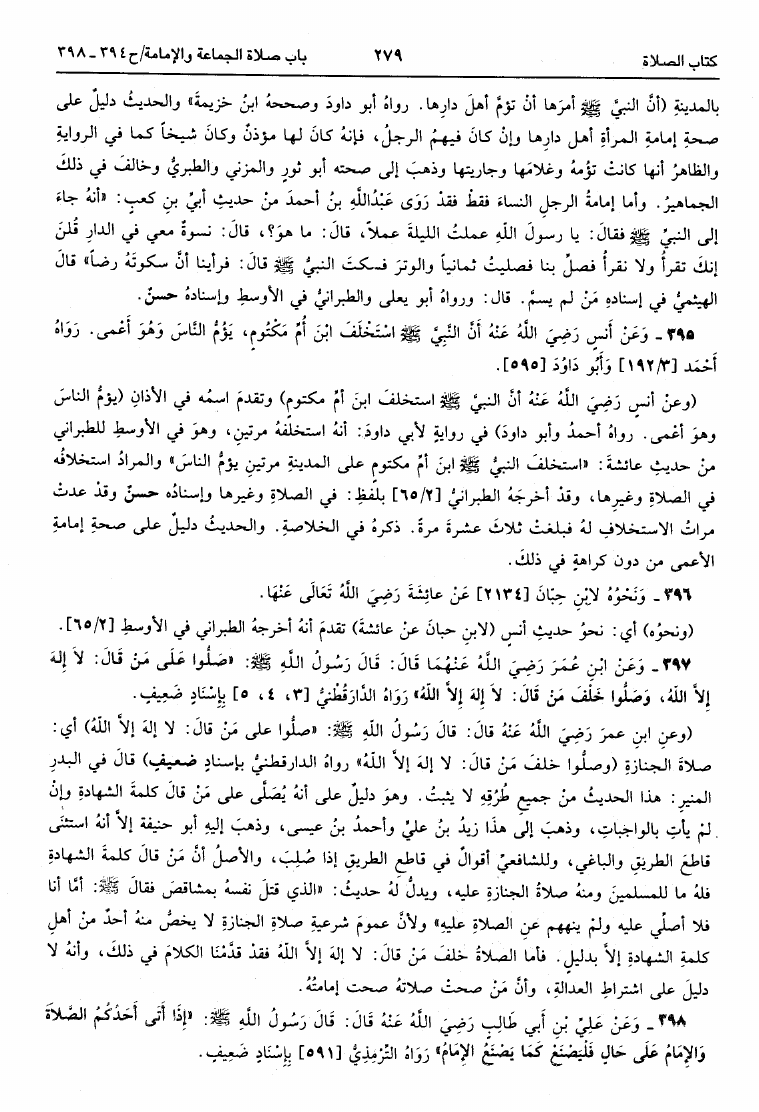 كتاب الصلاة ٢٧٩ باب صلاة الجماعة والإمامة/ح ٣٩٤ ـ ٣٩٨
بالمدينةِ (أنَّ النبيَّ ﷺ أمرَها أنْ تؤمَّ أهلَ دارِها. رواهُ أبو داودَ وصححهُ ابنُ خزيمةَ» والحديثُ دليلٌ على
صحةِ إمامةِ المرأةِ أهل دارِها وإنْ كانَ فيهمُ الرجلُ، فإنهُ كانَ لها مؤذنٌ وكانَ شيخاً كما في الروايةِ
والظاهرُ أنها كانتْ تؤمُهُ وغلامَها وجاريتها وذهبَ إلى صحته أبو ثورٍ والمزني والطبريُّ وخالفَ في ذلكَ
الجماهيرُ. وأما إمامةُ الرجلِ النساءَ فقطْ فقدْ رَوَى عَبْدُاللَّهِ بنُ أحمدَ منْ حديثِ أبيِّ بنِ كعبٍ: «أنهُ جاءَ
إلى النبيِّ ﷺ فقالَ: يا رسولَ اللَّهِ عملتُ الليلةَ عملاً، قالَ: ما هوَ؟، قالَ: نسوةٌ معي في الدارِ قُلنَ
إنكَ تقرأُ ولا نقرأُ فصلِّ بنا فصليتُ ثمانياً والوترَ فسكتَ النبيُّ ﷺ قالَ: فرأينا أنَّ سكوتَهُ رضاً» قالَ
الهيثميُّ في إسنادِهِ مَنْ لم يسمَّ. قالَ: ورواهُ أبو يعلى والطبرانيُّ في الأوسطِ وإسنادهُ حسنٌ.
٣٩٥ ـ وَعَنْ أَنَسٍ رَضِيَ اللَّهُ عَنْهُ أَنَّ النَّبِيَّ ﷺ اسْتَخْلَفَ ابْنَ أُمِّ مَكْتُومٍ، يَؤُمُّ النَّاسَ وَهُوَ أَعْمى. رَوَاهُ
أَحْمَد [٣/ ١٩٢] وَأَبُو دَاوُدَ [٥٩٥].
(وعنْ أنسٍ رَضِيَ اللَّهُ عَنْهُ أنَّ النبيَّ ﷺ استخلفَ ابنَ أمِّ مكتومٍ) وتقدمَ اسمُه في الأذانِ (يؤمُّ الناسَ
وهوَ أعْمى. رواهُ أحمدُ وأبو داودَ) في روايةٍ لأبي داودَ: أنهُ استخلَفهُ مرتينِ، وهوَ في الأوسطِ للطبراني
منْ حديثِ عائشةَ: «استخلفَ النبيُّ ﷺ ابنَ أمِّ مكتومٍ على المدينةِ مرتينِ يؤمُّ الناسَ» والمرادُ استخلافُه
في الصلاةِ وغيرِها، وقدْ أخرجَهُ الطبرانيُّ [٢/ ٦٥] بلفظِ: في الصلاةِ وغيرِها وإسنادُه حسنٌ وقدْ عدتْ
مراتُ الاستخلافِ لهُ فبلغتْ ثلاثَ عشرةَ مرةً. ذكرهُ في الخلاصةِ. والحديثُ دليلٌ على صحةِ إمامةِ
الأعمى من دونِ كراهةٍ في ذلكَ.
٣٩٦ ـ وَنَحْوُهُ لابْنِ حِبّانَ [٢١٣٤] عَنْ عائِشَةَ رَضِيَ اللَّهُ تَعَالَى عَنْهَا.
(ونحوُه) أي: نحوُ حديثِ أنسٍ (لابنِ حبانَ عنْ عائشةَ) تقدمَ أنهُ أخرجهُ الطبراني في الأوسطِ [٢/ ٦٥].
٣٩٧ ـ وَعَنْ ابْنِ عُمَرَ رَضِيَ اللَّهُ عَنْهُمَا قَالَ: قَالَ رَسُولُ اللَّهِ ﷺ: «صَلُّوا عَلَى مَنْ قَالَ: لاَ إِلهَ
إِلاَّ اللَّهُ، وَصَلُّوا خَلْفَ مَنْ قَالَ: لاَ إِلهَ إِلاَّ اللَّهُ» رَوَاهُ الدَّارَقُطْنيُّ [٣، ٤، ٥] بِإسْنَادٍ ضَعِيفٍ.
(وعنِ ابنِ عمرَ رَضِيَ اللَّهُ عَنْهُ قالَ: قالَ رَسُولُ اللَّهِ ﷺ: «صلُّوا على مَنْ قالَ: لا إلهَ إلاَّ اللَّهُ) أي:
صلاةَ الجنازةِ (وصلُّوا خلفَ مَنْ قالَ: لا إلهَ إلاَّ اللَّهُ» رواهُ الدارقطنيُّ بإسنادٍ ضعيفٍ) قالَ في البدرِ
المنيرِ: هذا الحديثُ منْ جميعِ طُرُقِهِ لا يثبتُ. وهوَ دليلٌ على أنهُ يُصَلَّى على مَنْ قالَ كلمةَ الشهادةِ وإنْ
لمْ يأتِ بالواجباتِ، وذهبَ إلى هذا زيدُ بنُ عليٍّ وأحمدُ بنُ عيسى، وذهبَ إليهِ أبو حنيفةَ إلاَّ أنهُ استثنَى
قاطعَ الطريقِ والباغي، وللشافعيِّ أقوالٌ في قاطعِ الطريقِ إذا صُلِبَ، والأصلُ أنَّ مَنْ قالَ كلمةَ الشهادةِ
فلهُ ما للمسلمينَ ومنهُ صلاةُ الجنازةِ عليه، ويدلُّ لهُ حديثُ: «الذي قتلَ نفسهُ بمشاقصَ فقالَ ﷺ: أمَّا أنا
فلا أصلِّي عليه ولمْ ينههم عنِ الصلاةِ عليهِ» ولأنَّ عمومَ شرعيةِ صلاةِ الجنازةِ لا يخصُّ منهُ أحدٌ منْ أهلِ
كلمةِ الشهادةِ إلاَّ بدليلٍ. فأما الصلاةُ خلفَ مَنْ قالَ: لا إلهَ إلاَّ اللَّهُ فقدْ قدَّمْنَا الكلامَ في ذلكَ، وأنهُ لا
دليلَ على اشتراطِ العدالةِ، وأنَّ مَنْ صحتْ صلاتهُ صحت إمامتُهُ.
٣٩٨ ـ وَعَنْ عَلِيِّ بْنِ أَبي طَالِبٍ رَضِيَ اللَّهُ عَنْهُ قَالَ: قَالَ رَسُولُ اللَّهِ ﷺ: «إِذَا أَتَى أَحَدُكُمُ الصَّلاةَ
وَالإِمَامُ عَلَى حَالٍ فَلْيَصْنَعْ كَمَا يَصْنَعُ الإِمَامُ» رَوَاهُ التِّرْمِذِيُّ [٥٩١] بِإسْنَادٍ ضَعِيفٍ.